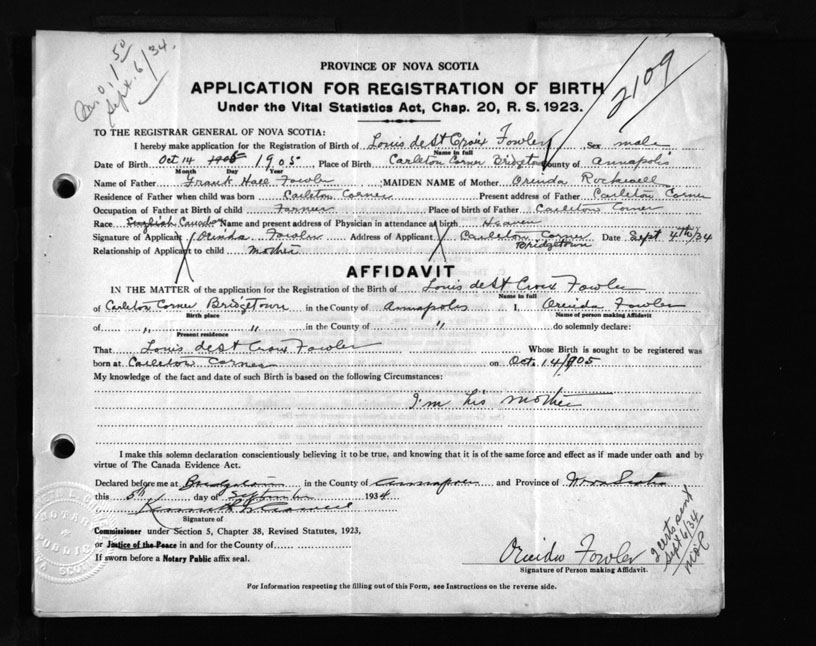 $1.50
Sept. 6/34.
2109
PROVINCE OF NOVA SCOTIA
APPLICATION FOR REGISTRATION OF BIRTH
Under the Vital Statistics Act, Chap. 20, R. S. 1923.
TO THE REGISTRAR GENERAL OF NOVA SCOTIA:
I hereby make application for the Registration of Birth of Louis de St Croix Fowler Sex male
Name in full
Date of Birth Oct 14 1905 1905 Place of Birth Carleton Corner Bridgetown County of Annapolis
Month Day Year
Name of Father Frank Hall Fowler MAIDEN NAME of Mother Oreida Rockwell
Residence of Father when child was born Carleton Corner Present address of Father Carleton Corner
Occupation of Father at Birth of child Farmer Place of birth of Father Carleton Corner
Race English Canada Name and present address of Physician in attendance at birth Heaven
Signature of Applicant Oreida Fowler Address of Applicant Carleton Corner Date Sept 4th/34
Bridgetown
Relationship of Applicant to child Mother
AFFIDAVIT
IN THE MATTER of the application for the Registration of Birth of Louis de St Croix Fowler
Name in full
of Carleton Corner Bridgetown in the County of Annapolis I, Oreida Fowler
Birth place Name of person making Affidavit
of " " in the County of " do solemnly declare:
Present residence
That Louis de St Croix Fowler Whose Birth is sought to be registered was
born at Carleton Corner on Oct. 14/905
My knowledge of the fact and date of such Birth is based on the following Circumstances:
I'm his mother
I make this solemn declaration conscientiously believing it to be true, and knowing that it is of the same force and effect as if made under oath and by
virtue of The Canada Evidence Act.
Declared before me at Bridgetown in the County of Annapolis and Province of Nova Scotia
this 5th day of September 1934
Kenneth
Signature of
Commissioner under Section 5, Chapter 38, Revised Statutes, 1923,
or Justice of the Peace in and for the County of
If sworn before a Notary Public affix seal.
Oreida Fowler
Signature of Person making Affidavit.
2 certs sent
Sept 6/34
For Information respecting the filling out of this Form, see Instructions on the reverse side.
NOTARY
PUBLIC